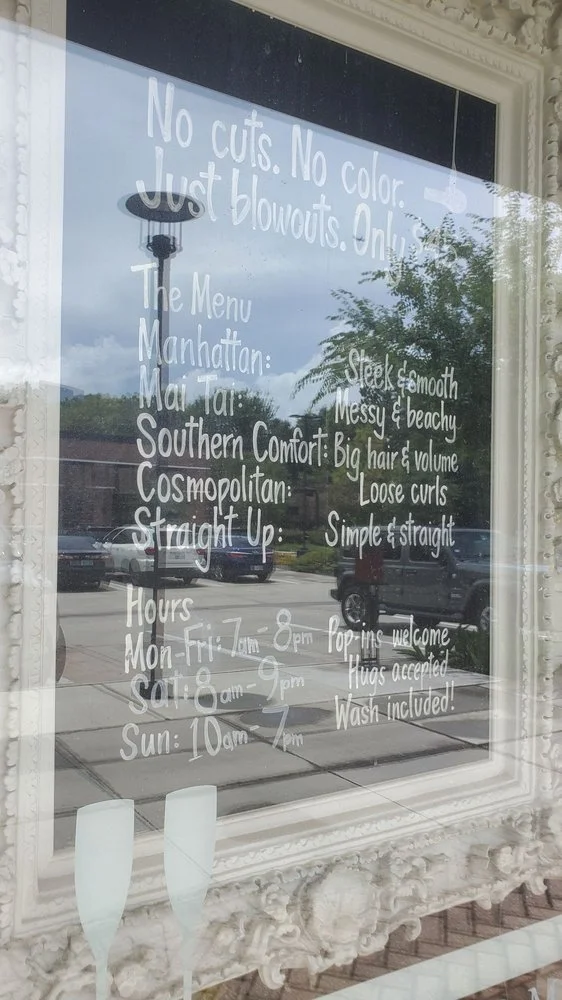 No cuts. No color.
Just blowouts. Only
The Menu
Manhattan: Sleek & smooth
Mai Tai: Messy & beachy
Southern Comfort: Big hair & volume
Cosmopolitan: Loose curls
Straight Up: Simple & straight
Hours
Mon-Fri: 7am - 8pm
Sat: 8am - 9pm
Sun: 10am - 7pm
Pop-ins welcome
Hugs accepted
Wash included!